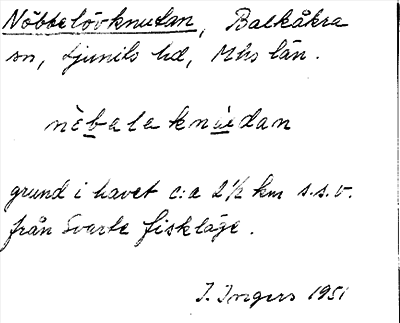 Nöbbelövknudan, Balkåkra
sn, Ljunits hd, Mhs län.
nèbalaknúdan
grund i havet c:a 2½ km s.s.v.
från Svarte fiskläge.
I. Ingers 1951